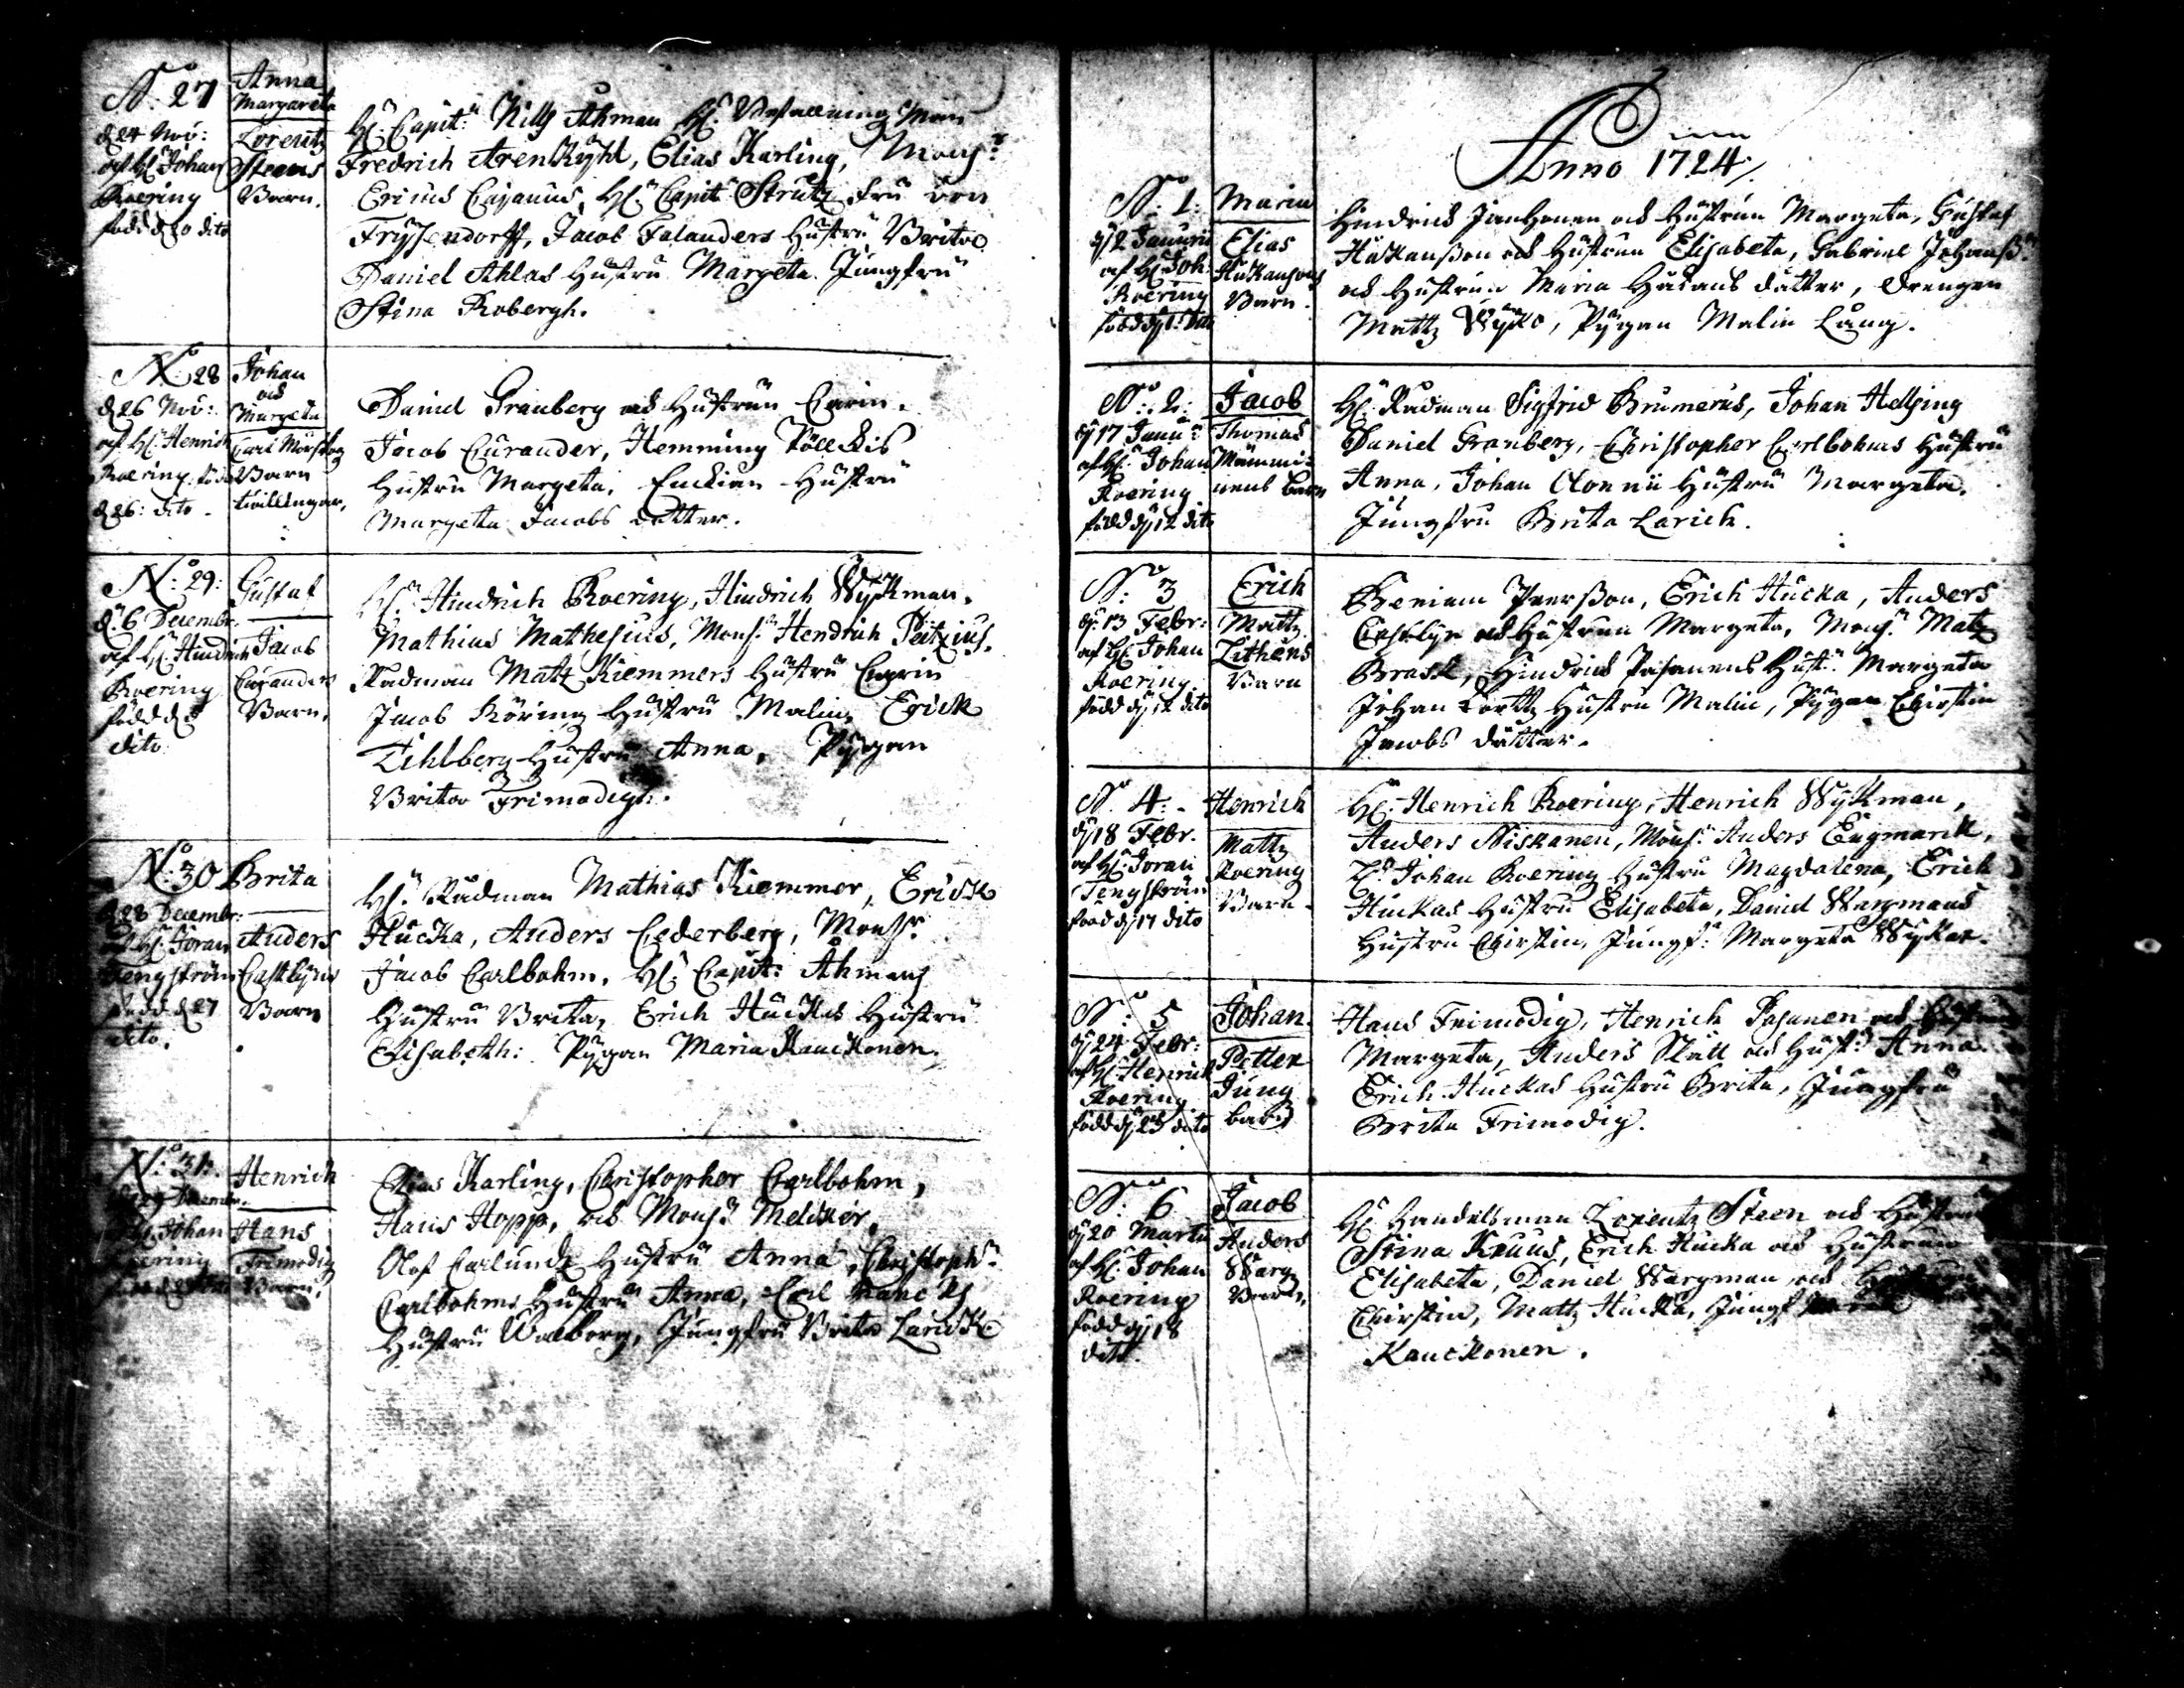 N:o 27
d 24 Nov:
af H: Johan
Roering
född d 20 dito
Anna
Margareta
Lorentz
Steens
Barn.
H: Capit: Nills Ahman H: Befallnings Man
Fredrich ArenKyhl, Elias Karling, Mons:r
Ericus Cajanus, H: Capit: Strutz Fru von
Frysendorff, Jacob Falanders Hustru Brita
Daniel Ahlas Hustru Margeta Jungfru
Stina Robergh.
N:o 28
d 26 Nov:
af H: Henrich
Roering född
d 26: dito.
Johan
och
Margeta
Carl
Barn
tvillingar.
Daniel Granberg och Hustrun Carin.
Jacob Curander, Hemming
Hustru Margeta, Hustru
Margeta Jacobs dotter.
N:o 29:
d. 6 Decembr.
af H: Hindrich
Roering
född d 5
dito.
Gustaf
Jacob
Curanders
Barn.
H: Hindrich Roering, Hindrich WyKman.
Mathias Mathesius, Mons: Hendrich Peitzius.
Rådman Matz Kiemmers Hustru Carin
Jacob Röring Hustru Malin, Erick
Lihlberg Hustru Anna, Pygan
Brita Frimodigh.
N:o 30
d 28 Decembr:
af H: Joran
Tengström
född d 27
dito.
Brita
Anders
Castlijns
Barn
H: Rådman Mathias Kiemmer, Erick
Hucka, Anders Cederberg, Mons:r
Jacob Carlbohm. H: Capit: Ahmans
Hustru Brita, Erich HucKas Hustru
Elisabeth: Pygan Maria KaucKonen.
N:o 31.
d 29 Decembr.
af H: Johan
Roering
Henrich
Hans
Frimodig
Barn.
Elias Karling, Christopher Carlbohm,
Hans Hopp, och Mons:r
Olof Carlunds Hustru Anna, Christoph:
Carlbohms Hustru Anna, Carl
Hustru Walborg, Jungfru Brita LaricK
Anno 1724.
N:o 1:
dy 2 Januarii
af H: Joh:
Roering
född dy 1: dito
Maria
Elias
Håkansons
Barn.
Hindrich Janhonen och Hustrun Margeta, Gustaf
Håkansson och Hustrun Elisabeta, Gabriel Johanss:
och Hustrun Maria Håkans dotter, drengen
Mattz Wyko, Pygan Malin Lång.
N:o 2:
dy 17 Janu:
af H: Johan
Roering
född dy 12 dito
Jacob
Thomas
Mämmi-
nens barn
H: Rådman Sigfrid Brumerus, Johan Helsing
Daniel Granberg, Christopher Carlbohms Hustru
Anna, Johan Hustru Margeta.
Jungfru Brita Larich.
N:o 3
dy 13 Febr:
af H: Johan
Roering
född dy 12 dito
Erich
Mattz
Lithens
Barn
Beniam Peersson, Erich Hucka, Anders
Castlijn och Hustrun Margeta, Mons: Matz
Brask, Hindrich Pasanens Hust: Margeta
Johan Hustru Malin, Pygan Chirstin
Jacobs dotter.
N:o 4:
dy 18 Febr.
af H: Joran
Tengström
född dy 17 dito
Henrich
Mattz
Roering
Barn.
H: Henrich Roering, Henrich WyKman,
Anders Niskanen, Mons: Anders Engmarck,
H: Johan Roering Hustru Magdalena, Erich
Huckas Hustru Elisabeta, Daniel Wargmans
Hustru Chirstin, Jungf: Margeta
N:o 5
dy 24 Febr:
af H: Henrich
Roering
född dy 23 dito
Johan.
Petter
Jung
barn
Hans Frimodig, Henrich Pasanen och Hustrun
Margeta, Anders och Hust: Anna.
Erich Huckas Hustru Brita, Jungfru
Brita Frimodig.
N:o 6
dy 20 Martii
af H: Johan
Roering
född dy 18
dito.
Jacob
Anders
Warg
Barn.
H: Handelsman Lorentz Steen och Hustrun
Stina Kruus, Erich Hucka och Hustrun
Elisabeta, Daniel Wargman och
Chirstin, Mattz Hucka, Jungf
Kauckonen.